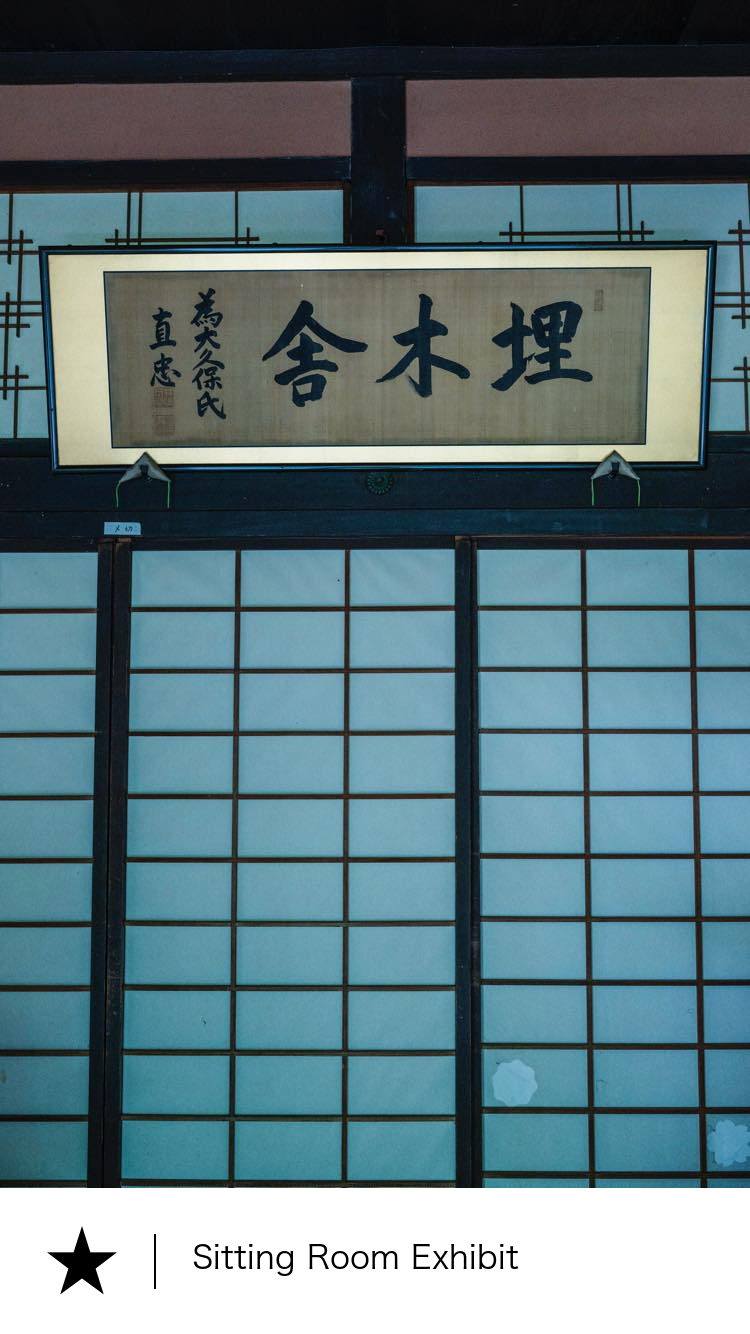 埋木舎
為大久保氏
直忠
〆切
Sitting Room Exhibit